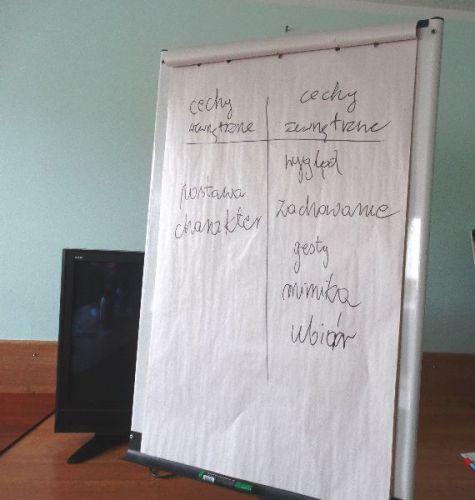 cechy
wewnętrzne
postawa
charakter
cechy
zewnętrzne
wygląd
zachowanie
gesty
mimika
ubiór